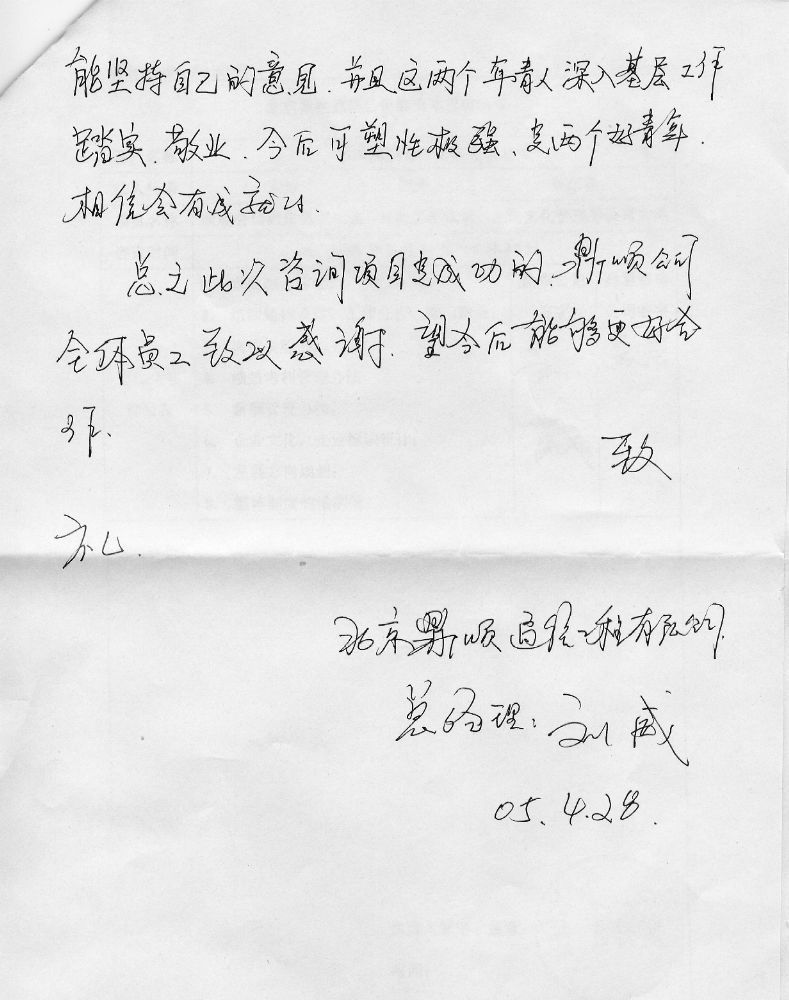 能坚持自己的意见.并且这两个年青人深入基层工作
踏实.敬业.今后可塑性极强、是两个好青年.
相信会有成就的.
总之此次咨询项目是成功的.鼎顺公司
全体员工致以感谢.望今后能够更好合
作.
致
礼.
北京鼎顺 工程有限公司.
总经理:刘威
05.4.28.